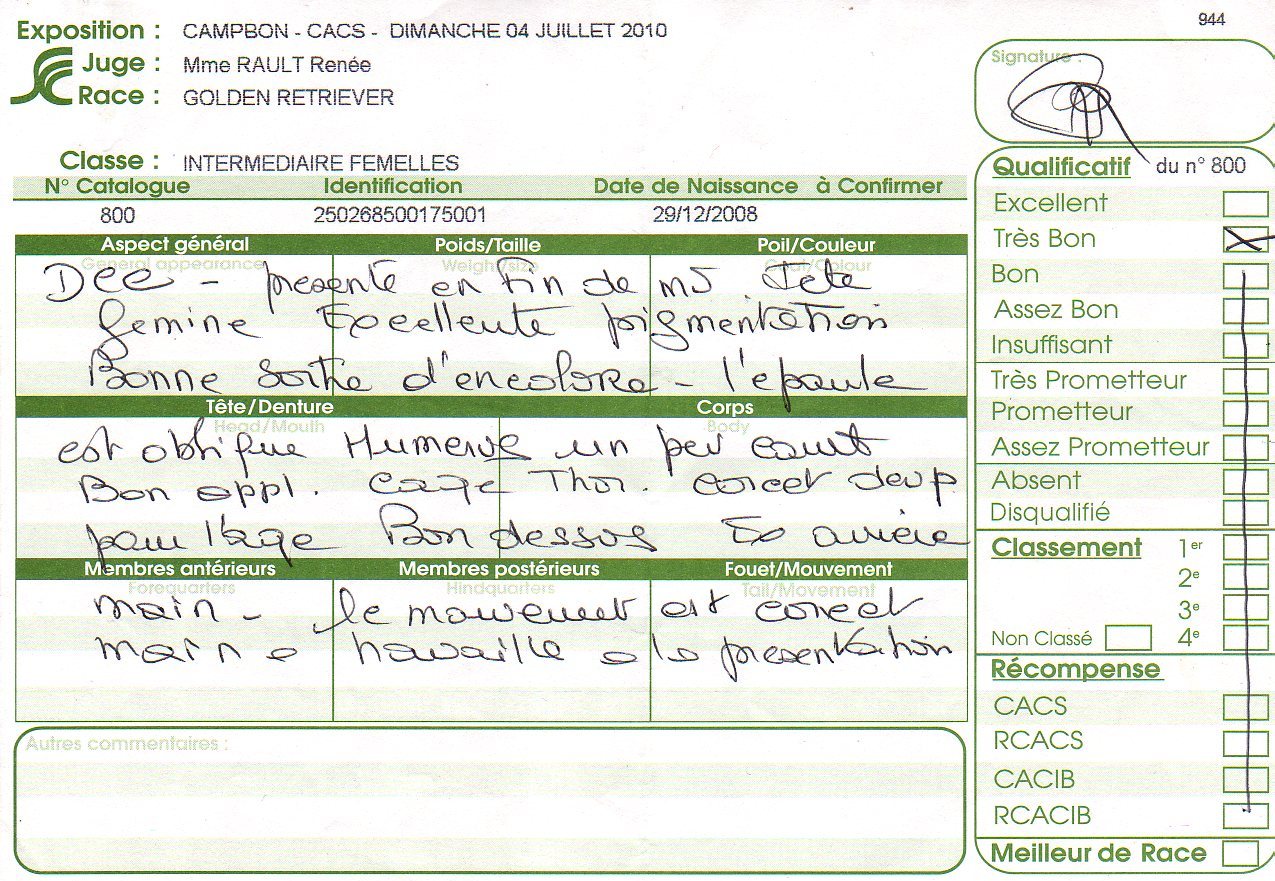 944
Exposition : CAMPBON - CACS - DIMANCHE 04 JUILLET 2010
Juge : Mme RAULT Renée
Race : GOLDEN RETRIEVER
Classe : INTERMEDIAIRE FEMELLES
N° Catalogue Identification Date de Naissance à Confirmer
800 250268500175001 29/12/2008
Aspect général Poids/Taille Poil/Couleur
General appearance Weight/size Coat/Colour
presente en fin de Tete
femine Excellente pigmentation
Bonne sortie d'encolure - l'epaule
Tête/Denture Corps
Head/Mouth Body
est oblique Humerus un peu court
Bon appl. cage Thor. correct devp
pour l'age Bon dessus Ex arriere
Membres antérieurs Membres postérieurs Fouet/Mouvement
Forequarters Hindquarters Tail/Movement
main - le mouvement est correct
main a travaille a la presentation
Autres commentaires :
Signature :
Qualificatif du n° 800
Excellent
Très Bon
Bon
Assez Bon
Insuffisant
Très Prometteur
Prometteur
Assez Prometteur
Absent
Disqualifié
Classement 1er
2e
3e
Non Classé 4e
Récompense
CACS
RCACS
CACIB
RCACIB
Meilleur de Race